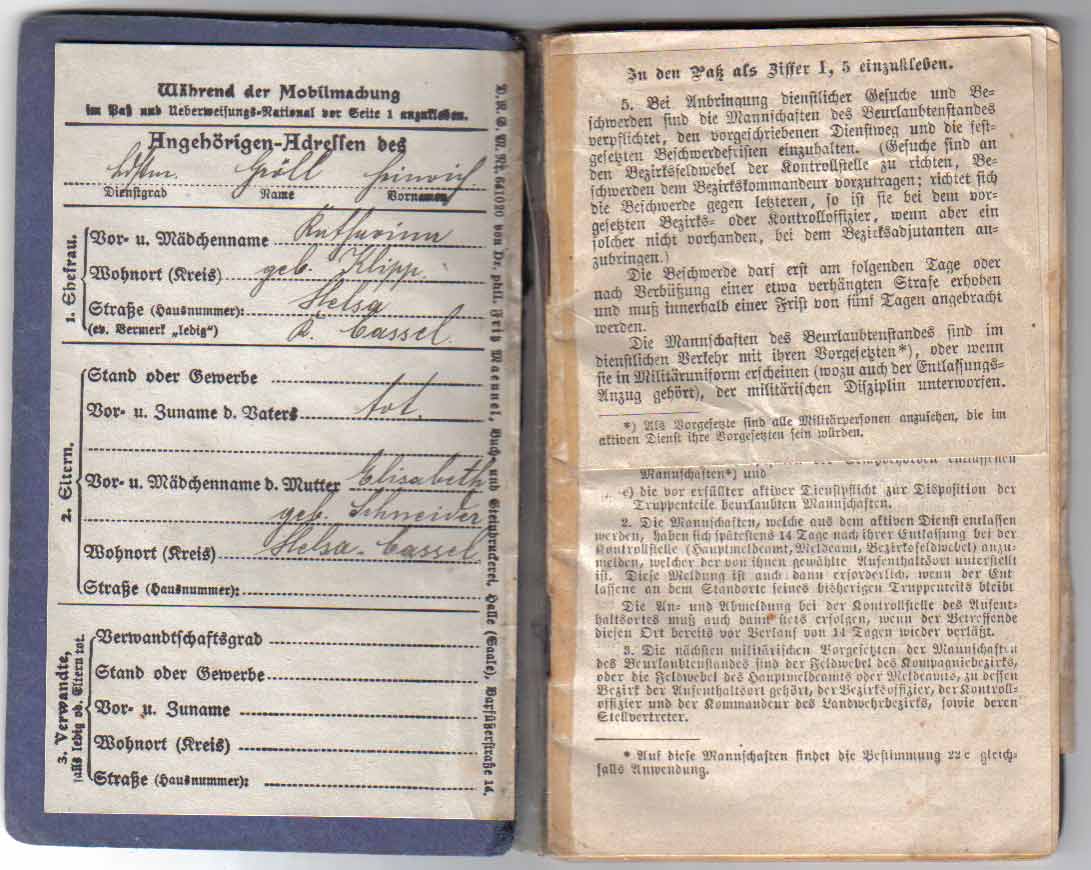 Während der Mobilmachung
im Paß und Ueberweisungs-National vor Seite 1 anzukleben.
Angehörigen-Adressen des
Ldstm. Gröll Heinrich
Dienstgrad Name Vornamen
1. Ehefrau.
Vor- u. Mädchenname Katharina
Wohnort (Kreis) geb. Klipp.
Straße (Hausnummer): Helsa
(ev. Vermerk „ledig“) K. Cassel.
2. Eltern.
Stand oder Gewerbe
Vor- u. Zuname d. Vaters tot.
Vor- u. Mädchenname d. Mutter Elisabeth
geb. Schneider
Wohnort (Kreis) Helsa-Cassel
Straße (Hausnummer):
3. Verwandte,
falls ledig od. Eltern tot.
Verwandtschaftsgrad
Stand oder Gewerbe
Vor- u. Zuname
Wohnort (Kreis)
Straße (Hausnummer):
D. R. G. M. Nr. 641020 von Dr. phil. Fritz Maennel, Buch- und Steindruckerei, Halle (Saale), Barfüßerstraße 14.
In den Paß als Ziffer I, 5 einzukleben.
5. Bei Anbringung dienstlicher Gesuche und Be-
schwerden sind die Mannschaften des Beurlaubtenstandes
verpflichtet, den vorgeschriebenen Dienstweg und die fest-
gesetzten Beschwerdefristen einzuhalten. (Gesuche sind an
den Bezirksfeldwebel der Kontrollstelle zu richten, Be-
schwerden dem Bezirkskommandeur vorzutragen; richtet sich
die Beschwerde gegen letzteren, so ist sie bei dem vor-
gesetzten Bezirks- oder Kontrolloffizier, wenn aber ein
solcher nicht vorhanden, bei dem Bezirksadjutanten an-
zubringen.)
Die Beschwerde darf erst am folgenden Tage oder
nach Verbüßung einer etwa verhängten Strafe erhoben
und muß innerhalb einer Frist von fünf Tagen angebracht
werden.
Die Mannschaften des Beurlaubtenstandes sind im
dienstlichen Verkehr mit ihren Vorgesetzten*), oder wenn
sie in Militäruniform erscheinen (wozu auch der Entlassungs-
Anzug gehört), der militärischen Disziplin unterworfen.
*) Als Vorgesetzte sind alle Militärpersonen anzusehen, die im
aktiven Dienst ihre Vorgesetzten sein würden.
Mannschaften*) und
e) die vor erfüllter aktiver Dienstpflicht zur Disposition der
Truppenteile beurlaubten Mannschaften.
2. Die Mannschaften, welche aus dem aktiven Dienst entlassen
werden, haben sich spätestens 14 Tage nach ihrer Entlassung bei der
Kontrollstelle (Hauptmeldeamt, Meldeamt, Bezirksfeldwebel) anzu-
melden, welcher der von ihnen gewählte Aufenthaltsort unterstellt
ist. Diese Meldung ist auch dann erforderlich, wenn der Ent
lassene an dem Standorte seines bisherigen Truppenteils bleibt
Die An- und Abmeldung bei der Kontrollstelle des Aufent-
haltsortes muß auch dann stets erfolgen, wenn der Betreffende
diesen Ort bereits vor Verlauf von 14 Tagen wieder verläßt.
3. Die nächsten militärischen Vorgesetzten der Mannschaften
des Beurlaubtenstandes sind der Feldwebel des Kompagniebezirks,
oder die Feldwebel des Hauptmeldeamts oder Meldeamts, zu dessen
Bezirk der Aufenthaltsort gehört, der Bezirksoffizier, der Kontroll-
offizier und der Kommandeur des Landwehrbezirks, sowie deren
Stellvertreter.
* Auf diese Mannschaften findet die Bestimmung 22c gleich-
falls Anwendung.